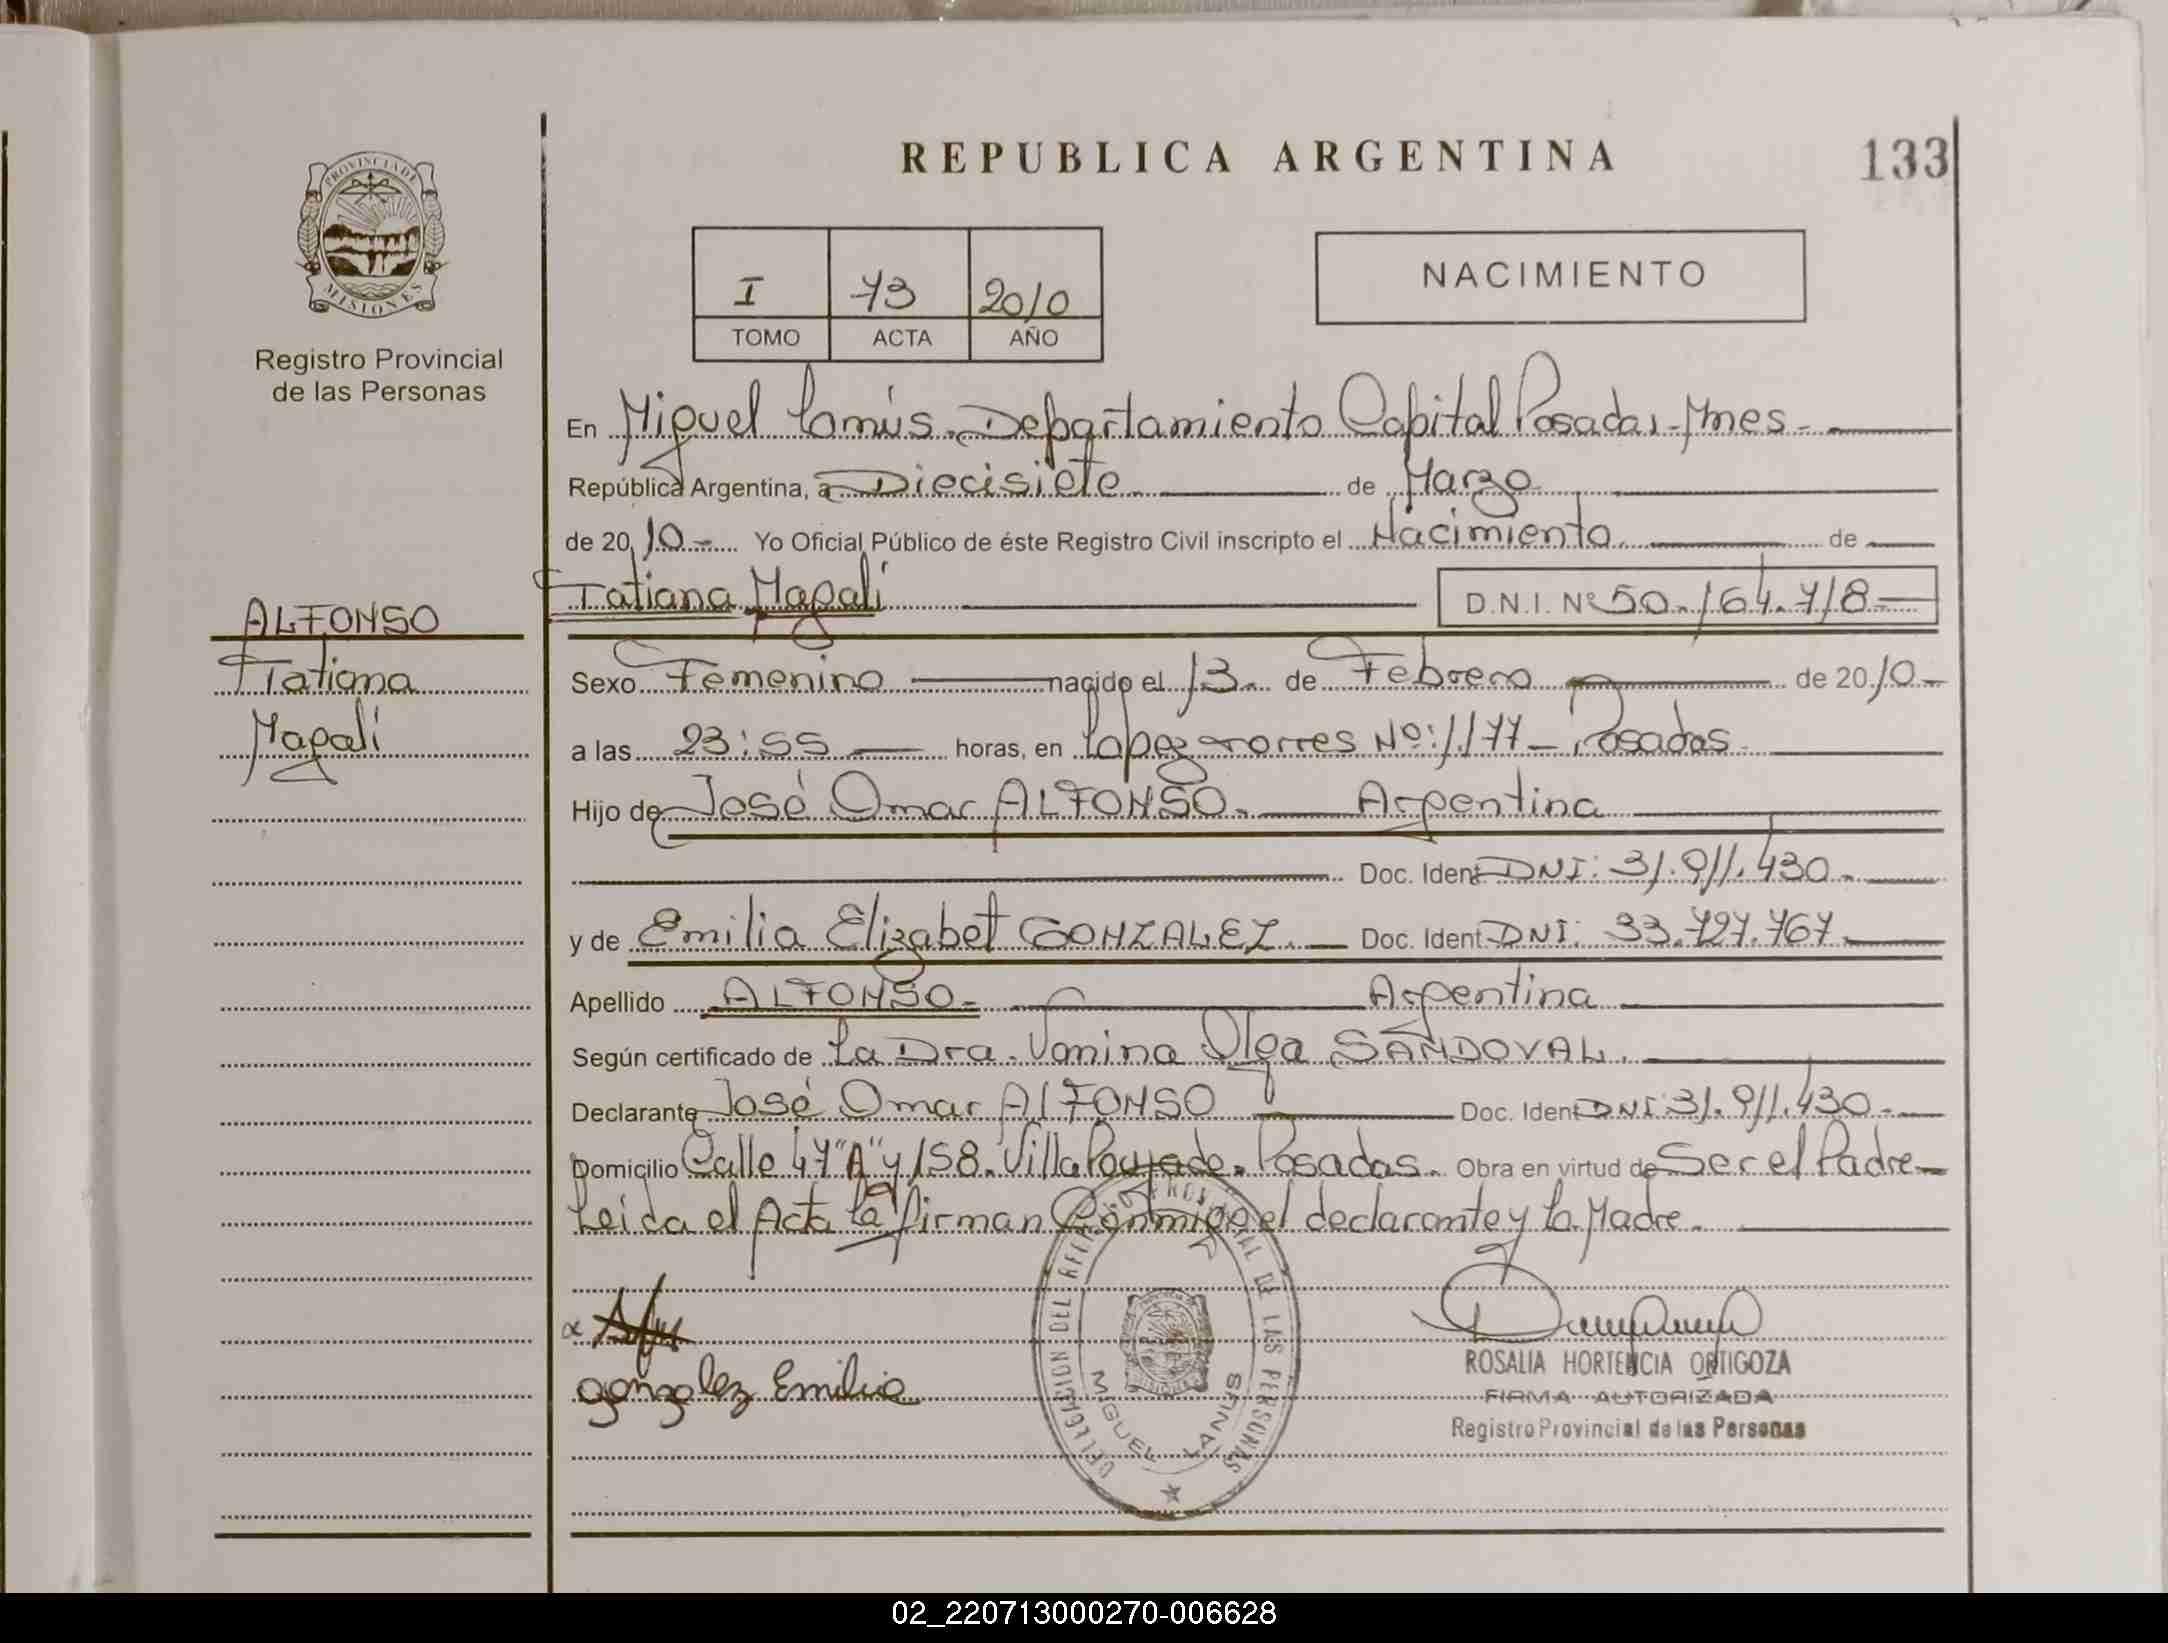 REPUBLICA ARGENTINA
133
PROVINCIA DE
MISIONES
Registro Provincial
de las Personas
I 73 2010
TOMO ACTA AÑO
NACIMIENTO
En Miguel Lanús. Departamiento Capital Posadas-Mnes-
República Argentina, a Diecisiete. de Marzo.
de 20 10.- Yo Oficial Público de éste Registro Civil inscripto el Nacimiento. de
Tatiana Magalí D.N.I. Nº 50.164.718-
ALFONSO
Tatiana
Magalí
Sexo Femenino nacido el 13. de Febrero de 20 10-
a las 23:55 horas, en Lopez Torres Nº:1.177- Posadas.
Hijo de José Omar ALFONSO. Argentina
Doc. Ident DNI: 31.911.430.
y de Emilia Elizabet GONZALEZ. Doc. Ident. DNI: 33.727.767.
Apellido ALFONSO- Argentina
Según certificado de La Dra. Vanina Olga SANDOVAL.
Declarante José Omar ALFONSO Doc. Ident DNI 31.911.430.-
Domicilio Calle 47"A" y 158. Villa Poujade. Posadas. Obra en virtud de Ser el Padre-
Leida el Acta la firman Conmigo el declarante y la Madre.
gonzalez Emilia
DELEGACION DEL REGISTRO PROVINCIAL DE LAS PERSONAS
MIGUEL LANUS
ROSALIA HORTENCIA ORTIGOZA
FIRMA AUTORIZADA
Registro Provincial de las Personas
02_220713000270-006628